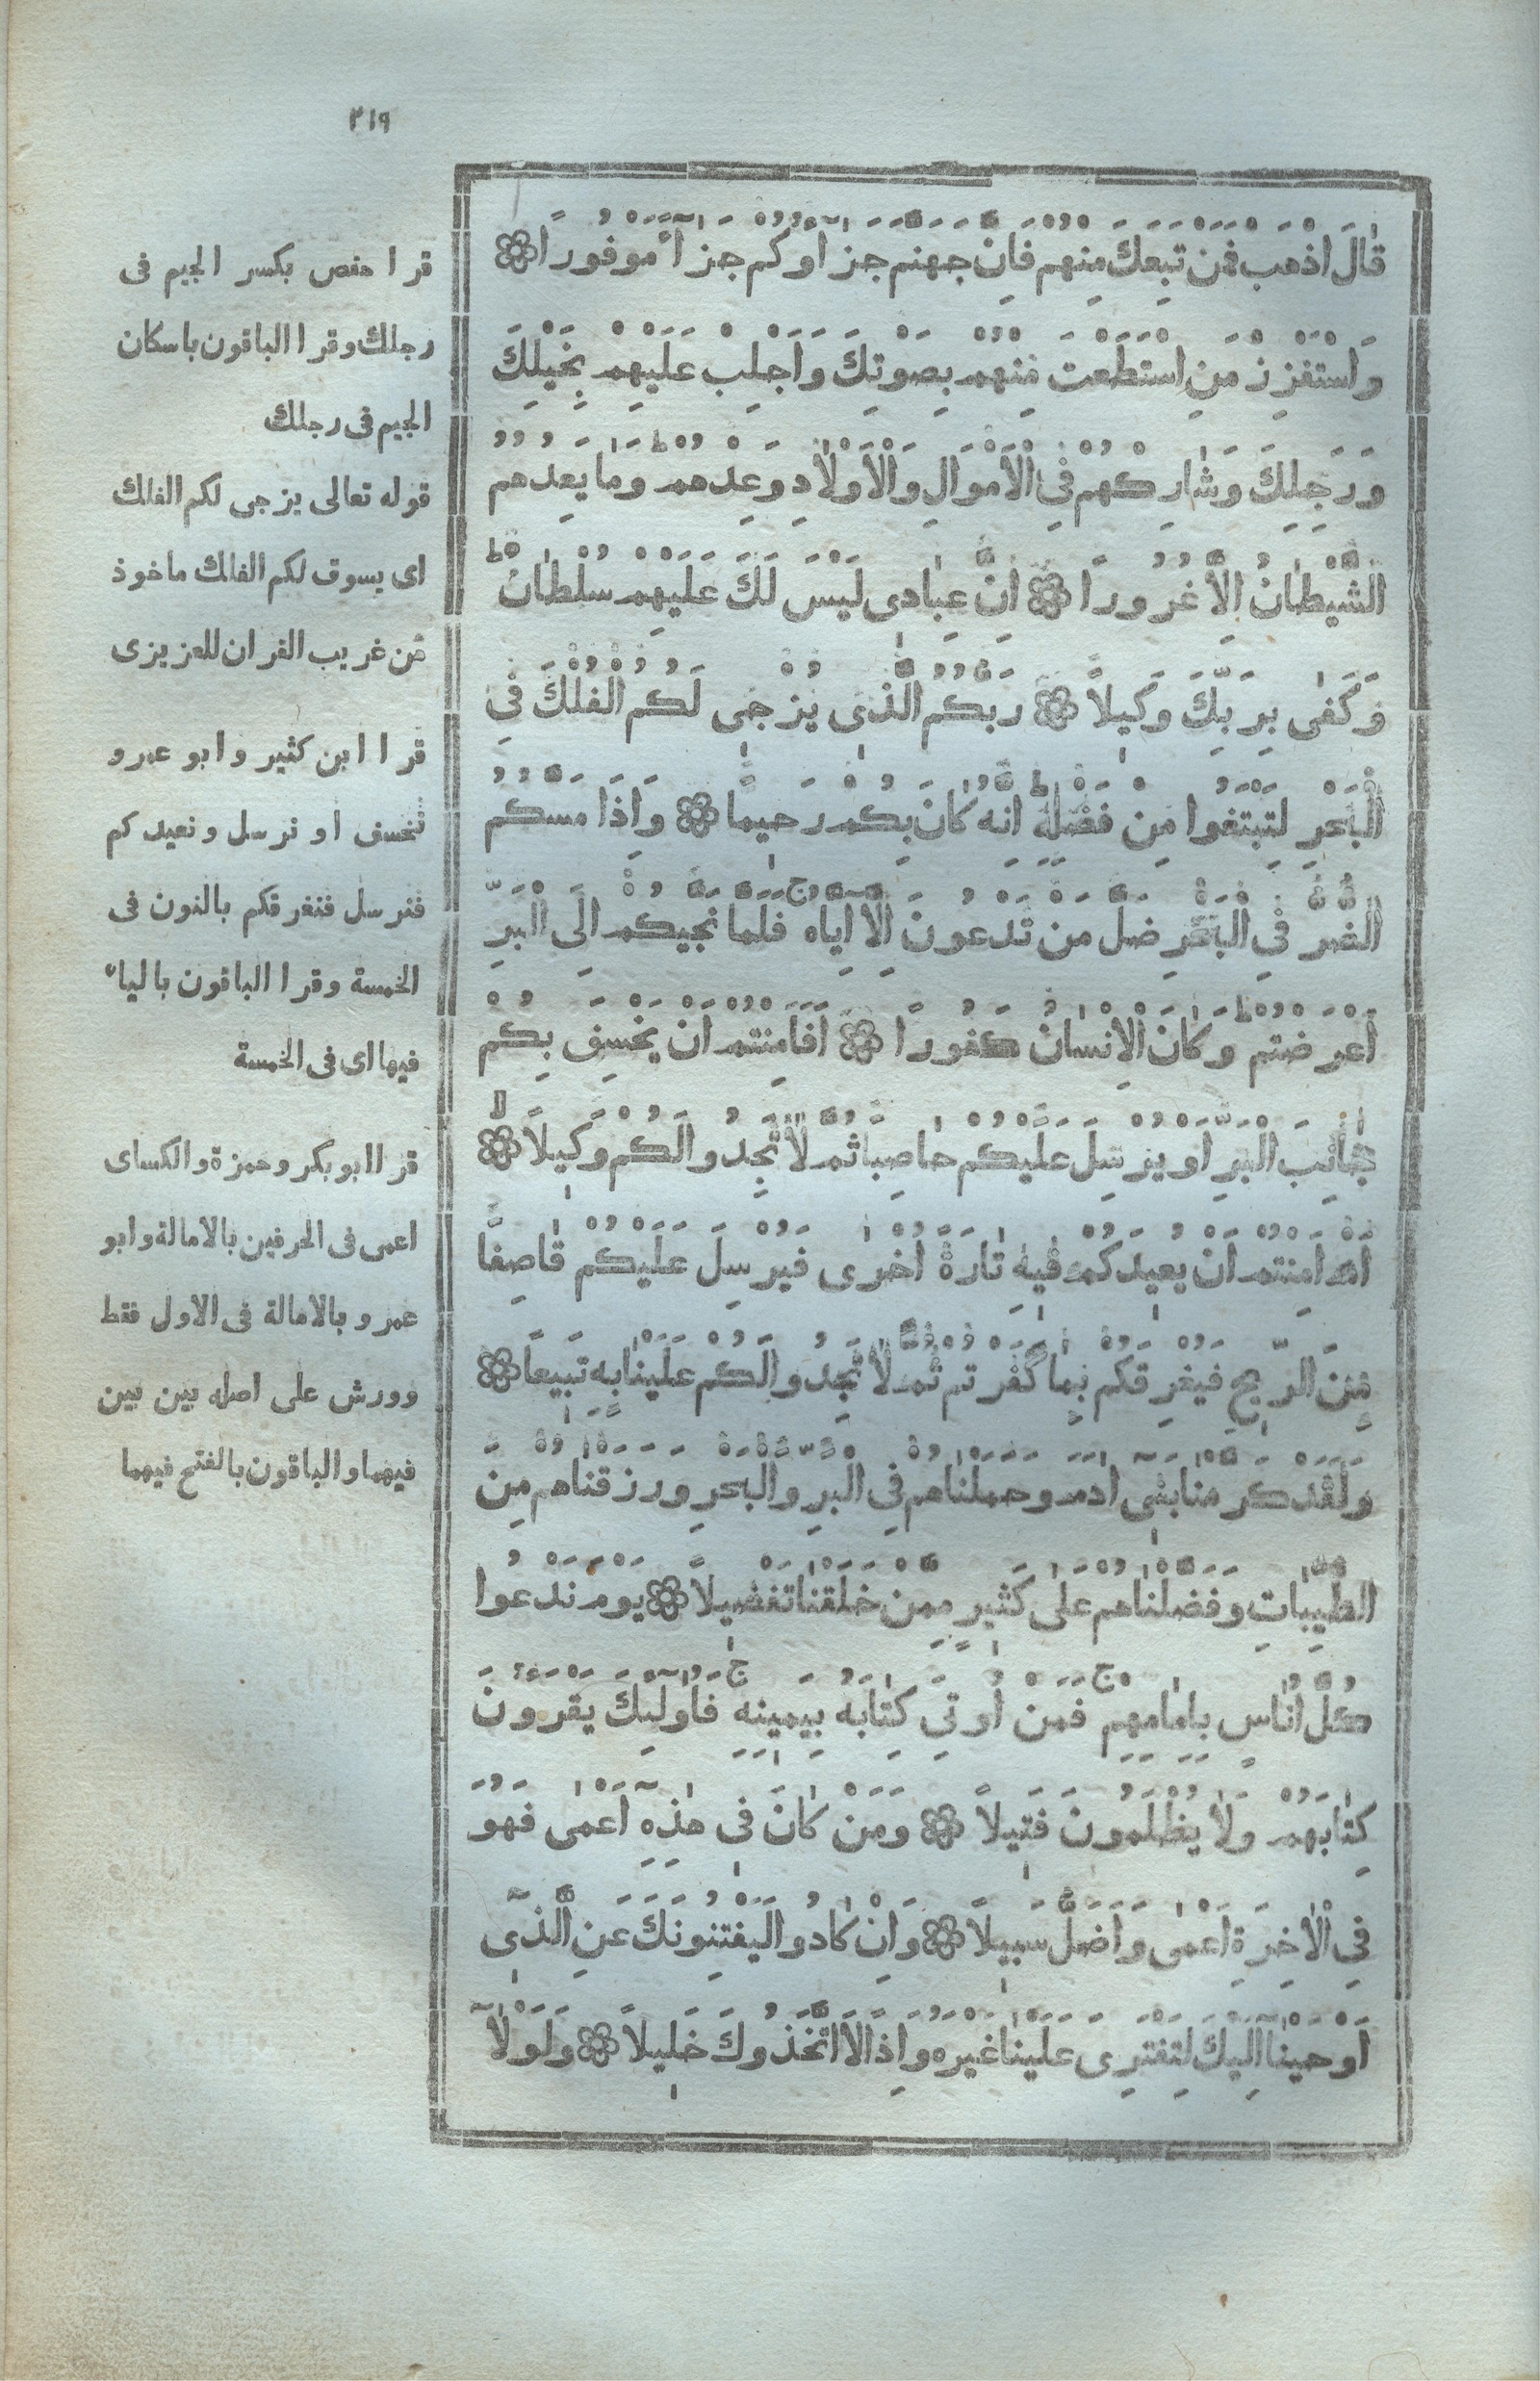 ٣١٩
قَالَ اذْهَبْ فَمَنْ تَبِعَكَ مِنْهُمْ فَاِنَّ جَهَنَّمَ جَزَآؤُكُمْ جَزَآءً مَوْفُورًا
وَاسْتَفْزِزْ مَنِ اسْتَطَعْتَ مِنْهُمْ بِصَوْتِكَ وَاَجْلِبْ عَلَيْهِمْ بِخَيْلِكَ
وَرَجِلِكَ وَشَارِكْهُمْ فِي الْاَمْوَالِ وَالْاَوْلَادِ وَعِدْهُمْ ط وَمَا يَعِدُهُمُ
الشَّيْطَانُ اِلَّا غُرُورًا اِنَّ عِبَادِى لَيْسَ لَكَ عَلَيْهِمْ سُلْطَانٌ ط
وَكَفٰى بِرَبِّكَ وَكِيلاً رَبُّكُمُ الَّذِى يُزْجِى لَكُمُ الْفُلْكَ فِى
الْبَحْرِ لِتَبْتَغُوا مِنْ فَضْلِهِ ط اِنَّهُ كَانَ بِكُمْ رَحِيمًا وَاِذَا مَسَّكُمُ
الضُّرُّ فِي الْبَحْرِ ضَلَّ مَنْ تَدْعُونَ اِلَّآ اِيَّاهُ ج فَلَمَّا نَجّٰيكُمْ اِلَى الْبَرِّ
اَعْرَضْتُمْ ط وَكَانَ الْاِنْسَانُ كَفُورًا اَفَاَمِنْتُمْ اَنْ يَخْسِفَ بِكُمْ
جَانِبَ الْبَرِّ اَوْ يُرْسِلَ عَلَيْكُمْ حَاصِبًا ثُمَّ لَا تَجِدُوا لَكُمْ وَكِيلاً لا
اَمْ اَمِنْتُمْ اَنْ يُعِيدَكُمْ فِيهِ تَارَةً اُخْرٰى فَيُرْسِلَ عَلَيْكُمْ قَاصِفًا
مِنَ الرِّيحِ فَيُغْرِقَكُمْ بِمَا كَفَرْتُمْ ثُمَّ لَا تَجِدُوا لَكُمْ عَلَيْنَا بِهِ تَبِيعًا
وَلَقَدْ كَرَّمْنَا بَنِىٓ اٰدَمَ وَحَمَلْنَاهُمْ فِي الْبَرِّ وَالْبَحْرِ وَرَزَقْنَاهُمْ مِنَ
الطَّيِّبَاتِ وَفَضَّلْنَاهُمْ عَلٰى كَثِيرٍ مِمَّنْ خَلَقْنَا تَفْضِيلاً يَوْمَ نَدْعُوا
كُلَّ اُنَاسٍ بِاِمَامِهِمْ ج فَمَنْ اُوتِىَ كِتَابَهُ بِيَمِينِهِ ج فَاُولٰٓئِكَ يَقْرَؤُنَ
كِتَابَهُمْ وَلَا يُظْلَمُونَ فَتِيلاً وَمَنْ كَانَ فِى هٰذِهِٓ اَعْمٰى فَهُوَ
فِى الْاٰخِرَةِ اَعْمٰى وَاَضَلُّ سَبِيلاً وَاِنْ كَادُوا لَيَفْتِنُونَكَ عَنِ الَّذِىٓ
اَوْحَيْنَآ اِلَيْكَ لِتَفْتَرِىَ عَلَيْنَا غَيْرَهُ وَاِذًا لَاتَّخَذُوكَ خَلِيلاً وَلَوْلَآ
قرا حفص بكسر الجيم فى
رجلك وقرا الباقون باسكان
الجيم فى رجلك
قوله تعالى يزجى لكم الفلك
اى يسوق لكم الفلك ماخوذ
من غريب القران للعزيزى
قرا ابن كثير وابو عمرو
نخسف او نرسل ونعيدكم
فنرسل فنغرقكم بالنون فى
الخمسة وقرا الباقون بالياء
فيها اى فى الخمسة
قرا ابو بكر وحمزة والكساى
اعمى فى الحرفين بالامالة وابو
عمرو بالامالة فى الاول فقط
وورش على اصله بين بين
فيهما والباقون بالفتح فيهما